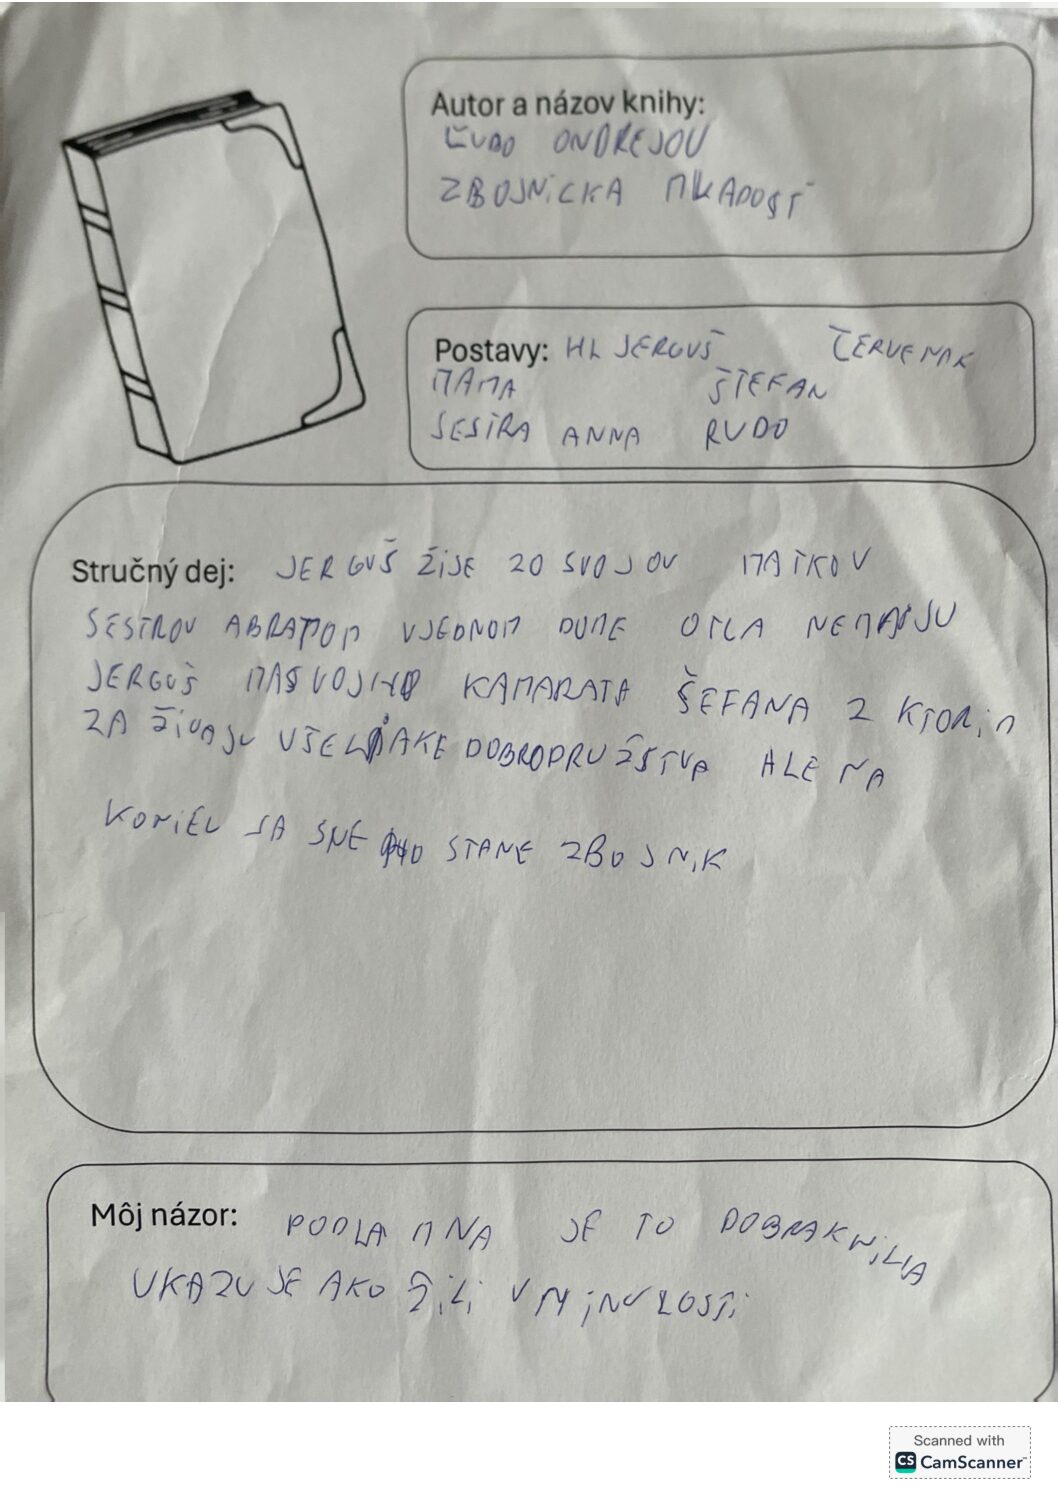 Autor a názov knihy:
ĽUDO ONDREJOV
ZBOJNICKA MLADOSŤ
Postavy: HL JERGUŠ ČERVENAK
MAMA ŠTEFAN
SESTRA ANNA RUDO
Stručný dej: JERGUŠ ŽIJE ZO SVOJOV MATKOV
SESTROV ABRATOM VJEDNOM DOME OTCA NEMAJU
JERGUŠ MA SVOJHO KAMARATA ŠEFANA Z KTORIM
ZA ŽIVAJU VŠELIJAKE DOBRODRUŽSTVA ALE NA
KONIEC SA SNEHO STANE ZBOJNIK
Môj názor: PODLA MNA JE TO DOBRA KNIHA
UKAZUJE AKO ŽILI V MINULOSTI
Scanned with
CS CamScanner